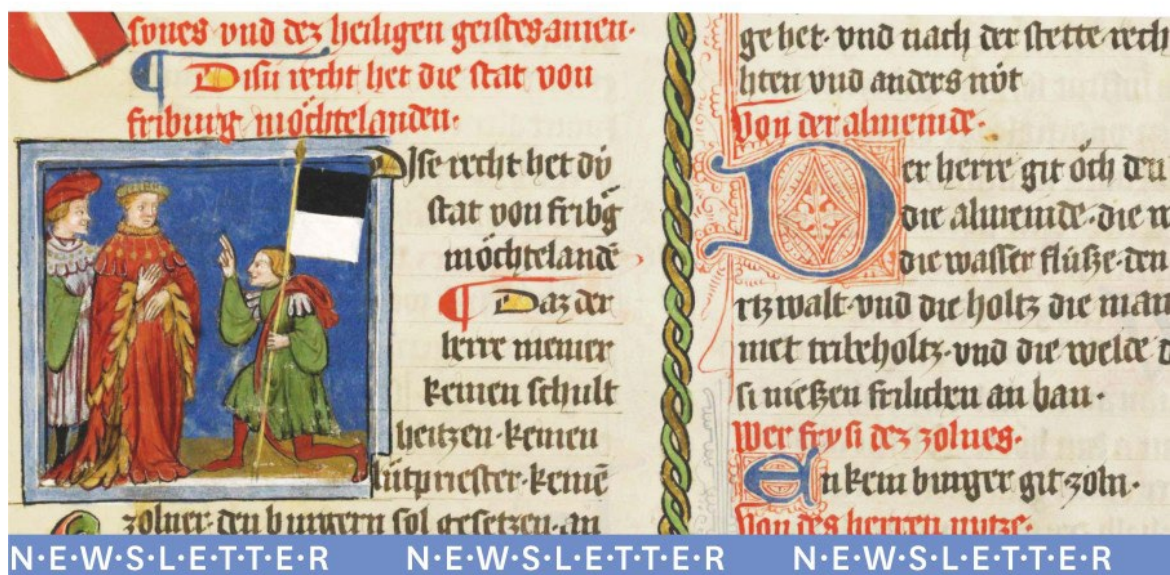 sones vnd dez heiligen geistes amen·
Disu recht het die stat von
friburg möchtelanden·
Dise recht het dú
stat von fribg
möchtelandē
Daz der
herre niemer
keinen schult
heitzen· keinen
lútpriester· keinē
zolner· den burgern sol gesetzen· an
ge het· vnd nach der stette rech
hten vnd anders nút
Von der almeinde·
Der herre git öch den
die almeinde· die
die wasser flúße· den
walt· vnd die holtz die man
die welde
si nießen frilichen an ban·
Wer fry si dez zolnes·
En kein burger git zoln·
Von des herren nutze·
N·E·W·S·L·E·T·T·E·R N·E·W·S·L·E·T·T·E·R N·E·W·S·L·E·T·T·E·R